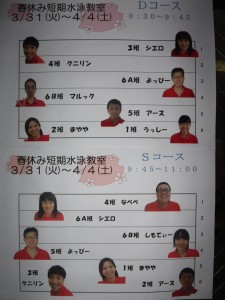 春休み短期水泳教室
3/31(火)～4/4(土)
Dコース
8:30～9:45
3班 シエロ
4班 クニリン
6A班 よっぴー
6B班 マルック
5班 アース
2班 まやや
1班 うっしー
春休み短期水泳教室
3/31(火)～4/4(土)
Sコース
9:45～11:00
4班 なべべ
6A班 シエロ
6B班 しもてぃー
5班 よっぴー
1班 まやや
3班
クニリン
2班 アース